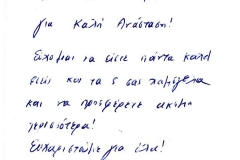 για Καλή Ανάσταση!
Εύχομαι να είστε πάντα καλά
εσείς και τα 5 σας
και να προσφέρετε ακόμα
περισσότερα!
Ευχαριστούμε για όλα!